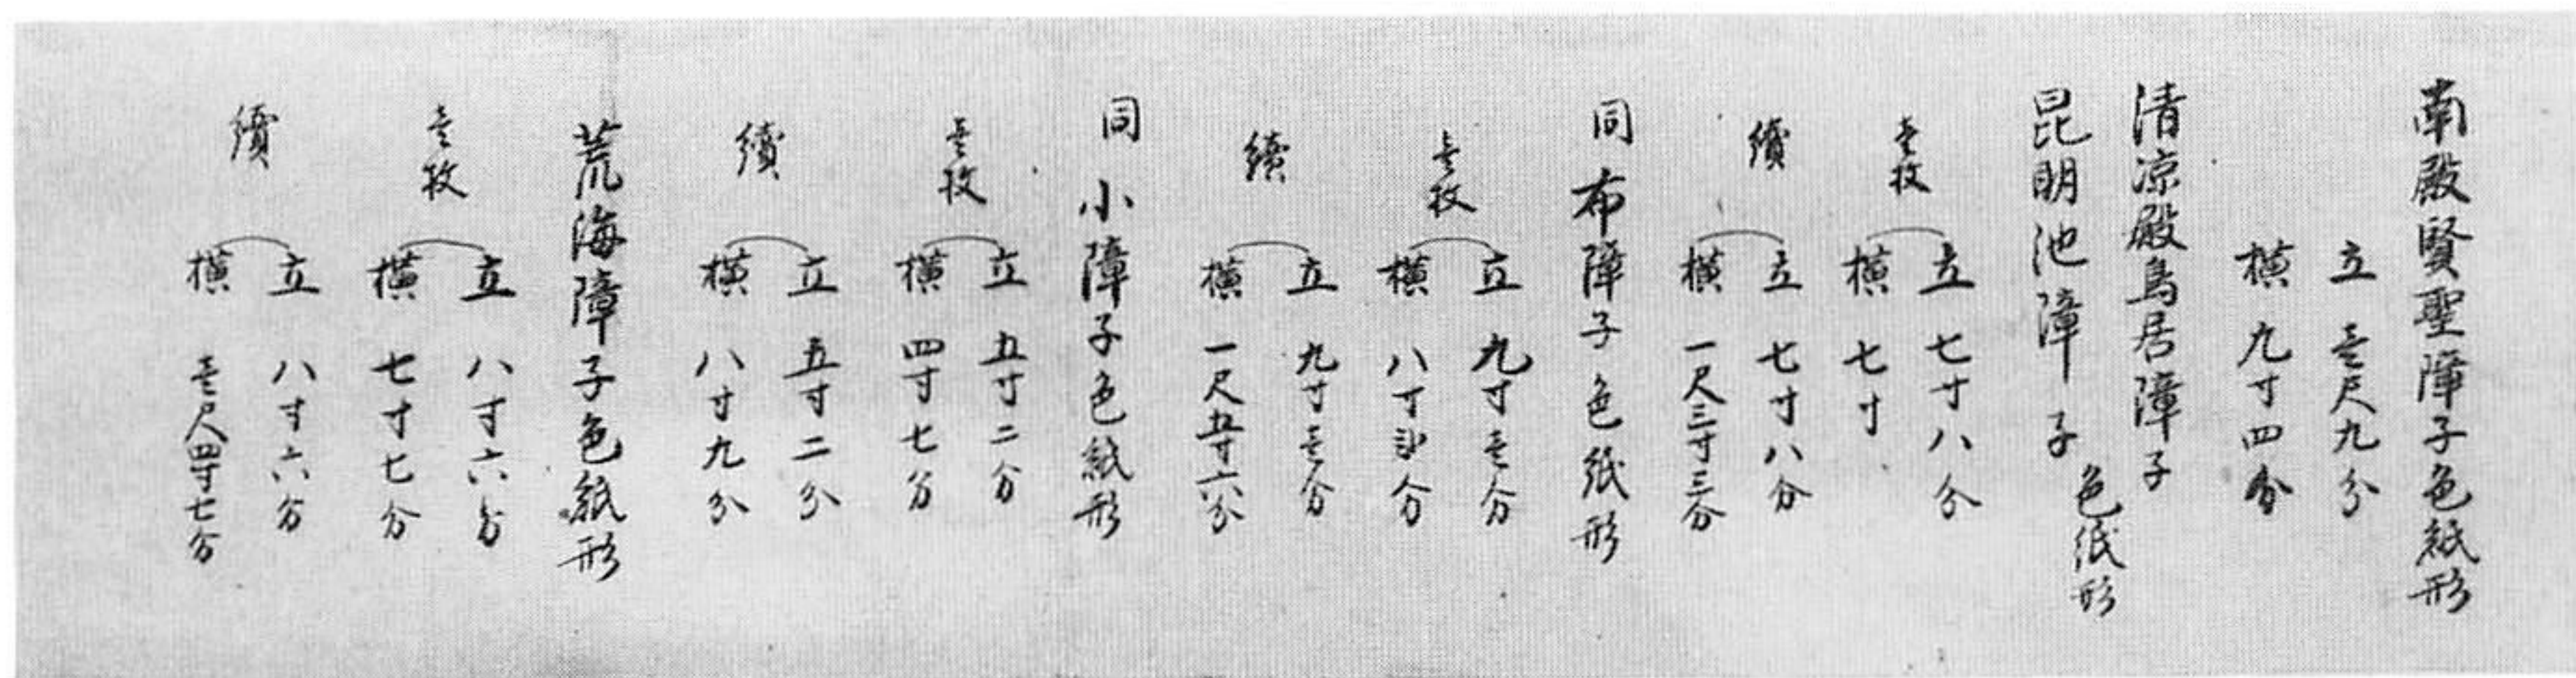 南殿賢聖障子色紙形
立 壱尺九分
横 九寸四分
清凉殿鳥居障子
昆明池障子
色紙形
壱枚
立 七寸八分
横 七寸
續
立 七寸八分
横 一尺三寸三分
同布障子色紙形
壱枚
立 九寸壱分
横 八寸 分
續
立 九寸壱分
横 一尺五寸六分
同小障子色紙形
壱枚
立 五寸二分
横 四寸七分
續
立 五寸二分
横 八寸九分
荒海障子色紙形
壱枚
立 八寸六分
横 七寸七分
續
立 八寸六分
横 壱尺四寸七分